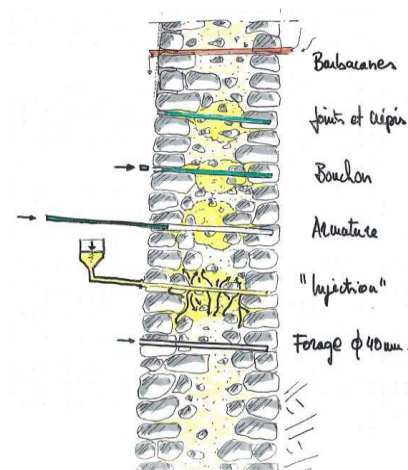 Barbacanes
Joints et crépis
Bouchon
Armature
"Injection"
Forage ϕ 40mm.